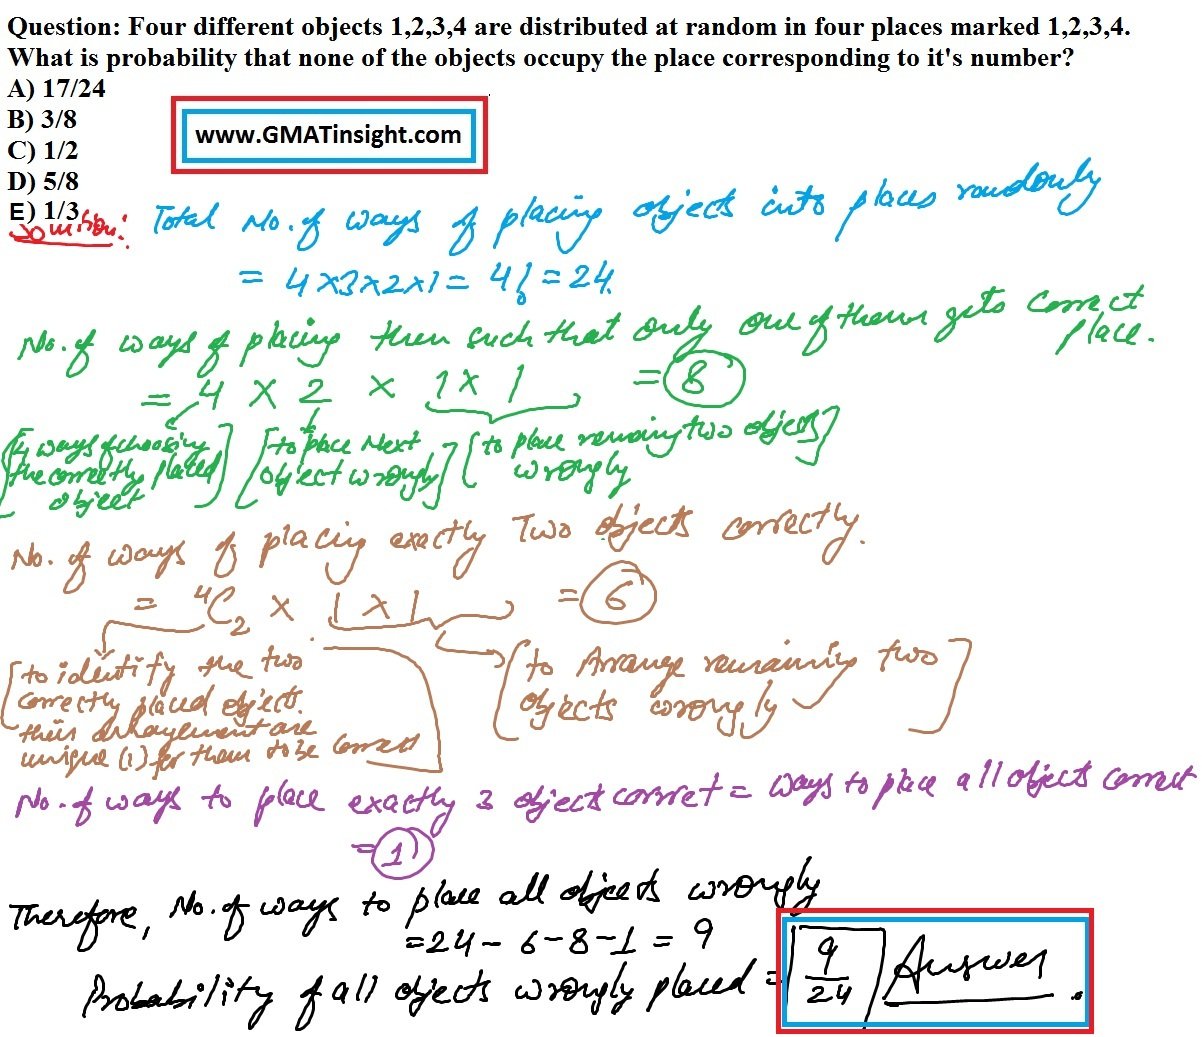 Question: Four different objects 1,2,3,4 are distributed at random in four places marked 1,2,3,4.
What is probability that none of the objects occupy the place corresponding to it's number?
A) 17/24
B) 3/8
C) 1/2
D) 5/8
E) 1/3
www.GMATinsight.com
Solution:
Total No. of ways of placing objects into places randomly
= 4×3×2×1 = 4! = 24.
No. of ways of placing them such that only one of them gets correct
place.
= 4 × 2 × 1×1 = 8
[4 ways of choosing the correctly placed object] [to place Next object wrongly] [to place remaining two objects wrongly]
No. of ways of placing exactly Two objects correctly.
= ⁴C₂ × 1×1 = 6
[to identify the two
correctly placed objects.
their arrangement are
unique (1) for them to be correct]
[to Arrange remaining two
objects wrongly]
No. of ways to place exactly 3 object correct = ways to place all object correct
= 1
Therefore, No. of ways to place all objects wrongly
=24-6-8-1 = 9
Probability of all objects wrongly placed = 9/24 Answer.